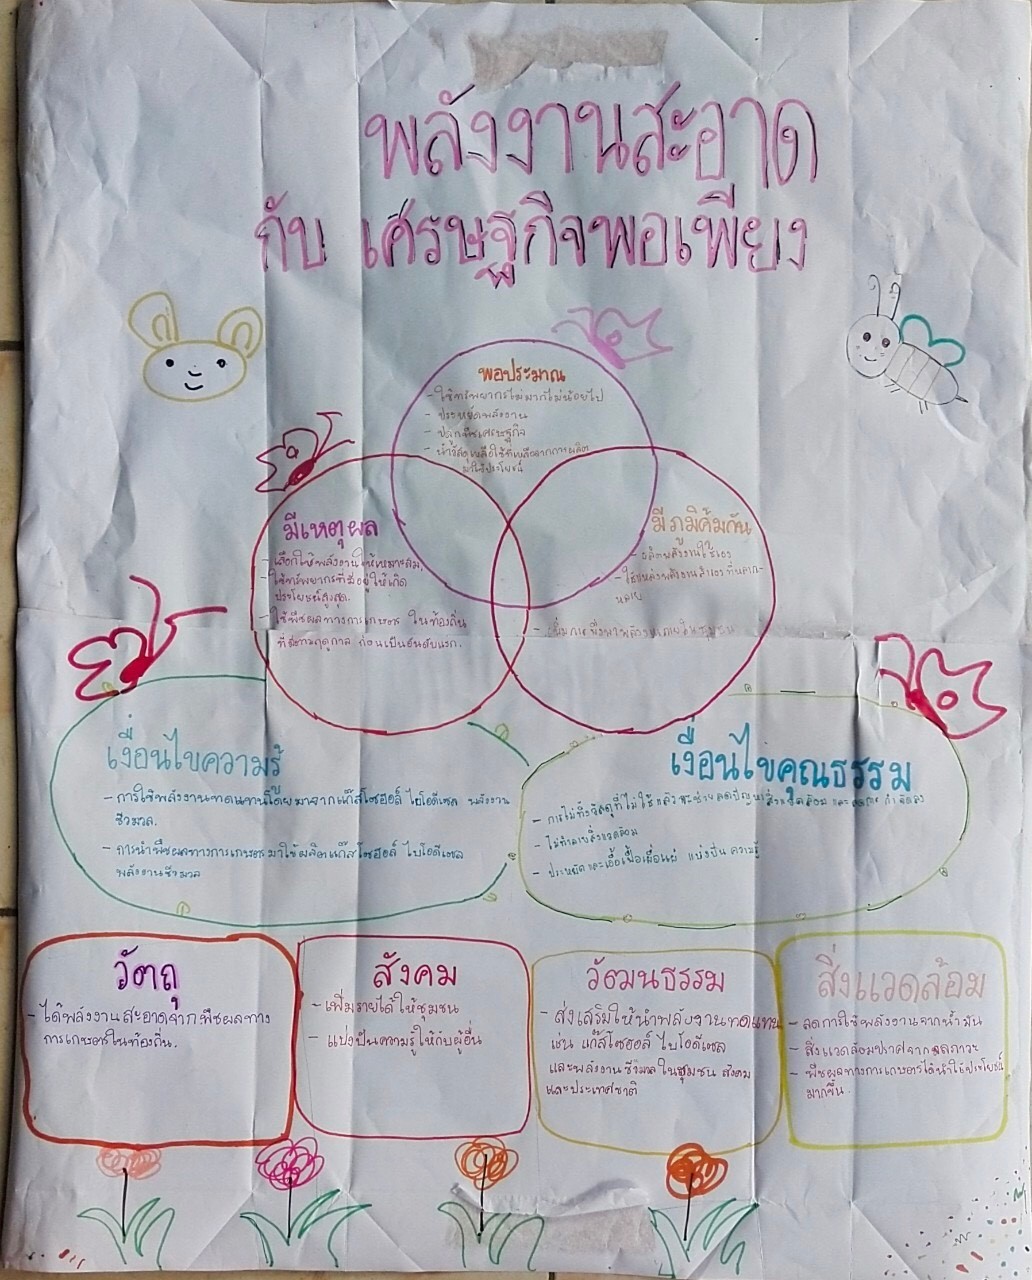 พลังงานสะอาด
กับ เศรษฐกิจพอเพียง
พอประมาณ
- ใช้ทรัพยากรไม่มากไม่น้อยไป
- ประหยัดพลังงาน
- ปลูกพืชเศรษฐกิจ
- นำวัสดุเหลือใช้ที่เหลือจากการผลิต
มาใช้ประโยชน์
มีเหตุผล
- เลือกใช้พลังงานให้เหมาะสม.
- ใช้ทรัพยากรที่มีอยู่ให้เกิด
ประโยชน์สูงสุด.
- ใช้พืชผลทางการเกษตร ในท้องถิ่น
ที่มีตามฤดูกาล ก่อนเป็นอันดับแรก.
มีภูมิคุ้มกัน
- ผลิตพลังงานใช้เอง
- ใช้แหล่งพลังงานสำรองที่หลาก-
หลาย
- เพิ่มการพึ่งพาพลังงานภายในชุมชน
เงื่อนไขความรู้
- การใช้พลังงานทดแทนโดยมาจากแก๊สโซฮอล์ ไบโอดีเซล พลังงาน
ชีวมวล.
- การนำพืชผลทางการเกษตรมาใช้ผลิตแก๊สโซฮอล์ ไบโอดีเซล
พลังงานชีวมวล
เงื่อนไขคุณธรรม
- การไม่ทิ้งวัสดุที่ไม่ใช้แล้วจะช่วยลดปัญหาสิ่งแวดล้อมและ
- ไม่ทำลายสิ่งแวดล้อม
- ประหยัดและเอื้อเฟื้อเผื่อแผ่ แบ่งปัน ความรู้
วัตถุ
- ได้พลังงานสะอาดจากพืชผลทาง
การเกษตรในท้องถิ่น.
สังคม
- เพิ่มรายได้ให้ชุมชน
- แบ่งปันความรู้ให้กับผู้อื่น
วัฒนธรรม
- ส่งเสริมให้นำพลังงานทดแทน
เช่น แก๊สโซฮอล์ ไบโอดีเซล
และพลังงานชีวมวลในชุมชน สังคม
และประเทศชาติ
สิ่งแวดล้อม
- ลดการใช้พลังงานจากน้ำมัน
- สิ่งแวดล้อมปราศจากมลภาวะ
- พืชผลทางการเกษตรได้นำใช้ประโยชน์
มากขึ้น.